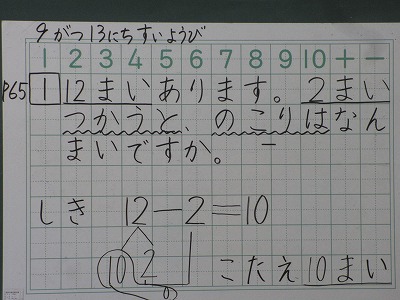 9がつ13にちすいようび
1 2 3 4 5 6 7 8 9 10 + −
P65 1 12まいあります。2まい
つかうと、のこりはなん
まいですか。 −
しき 12−2=10
10 2 0
こたえ10まい